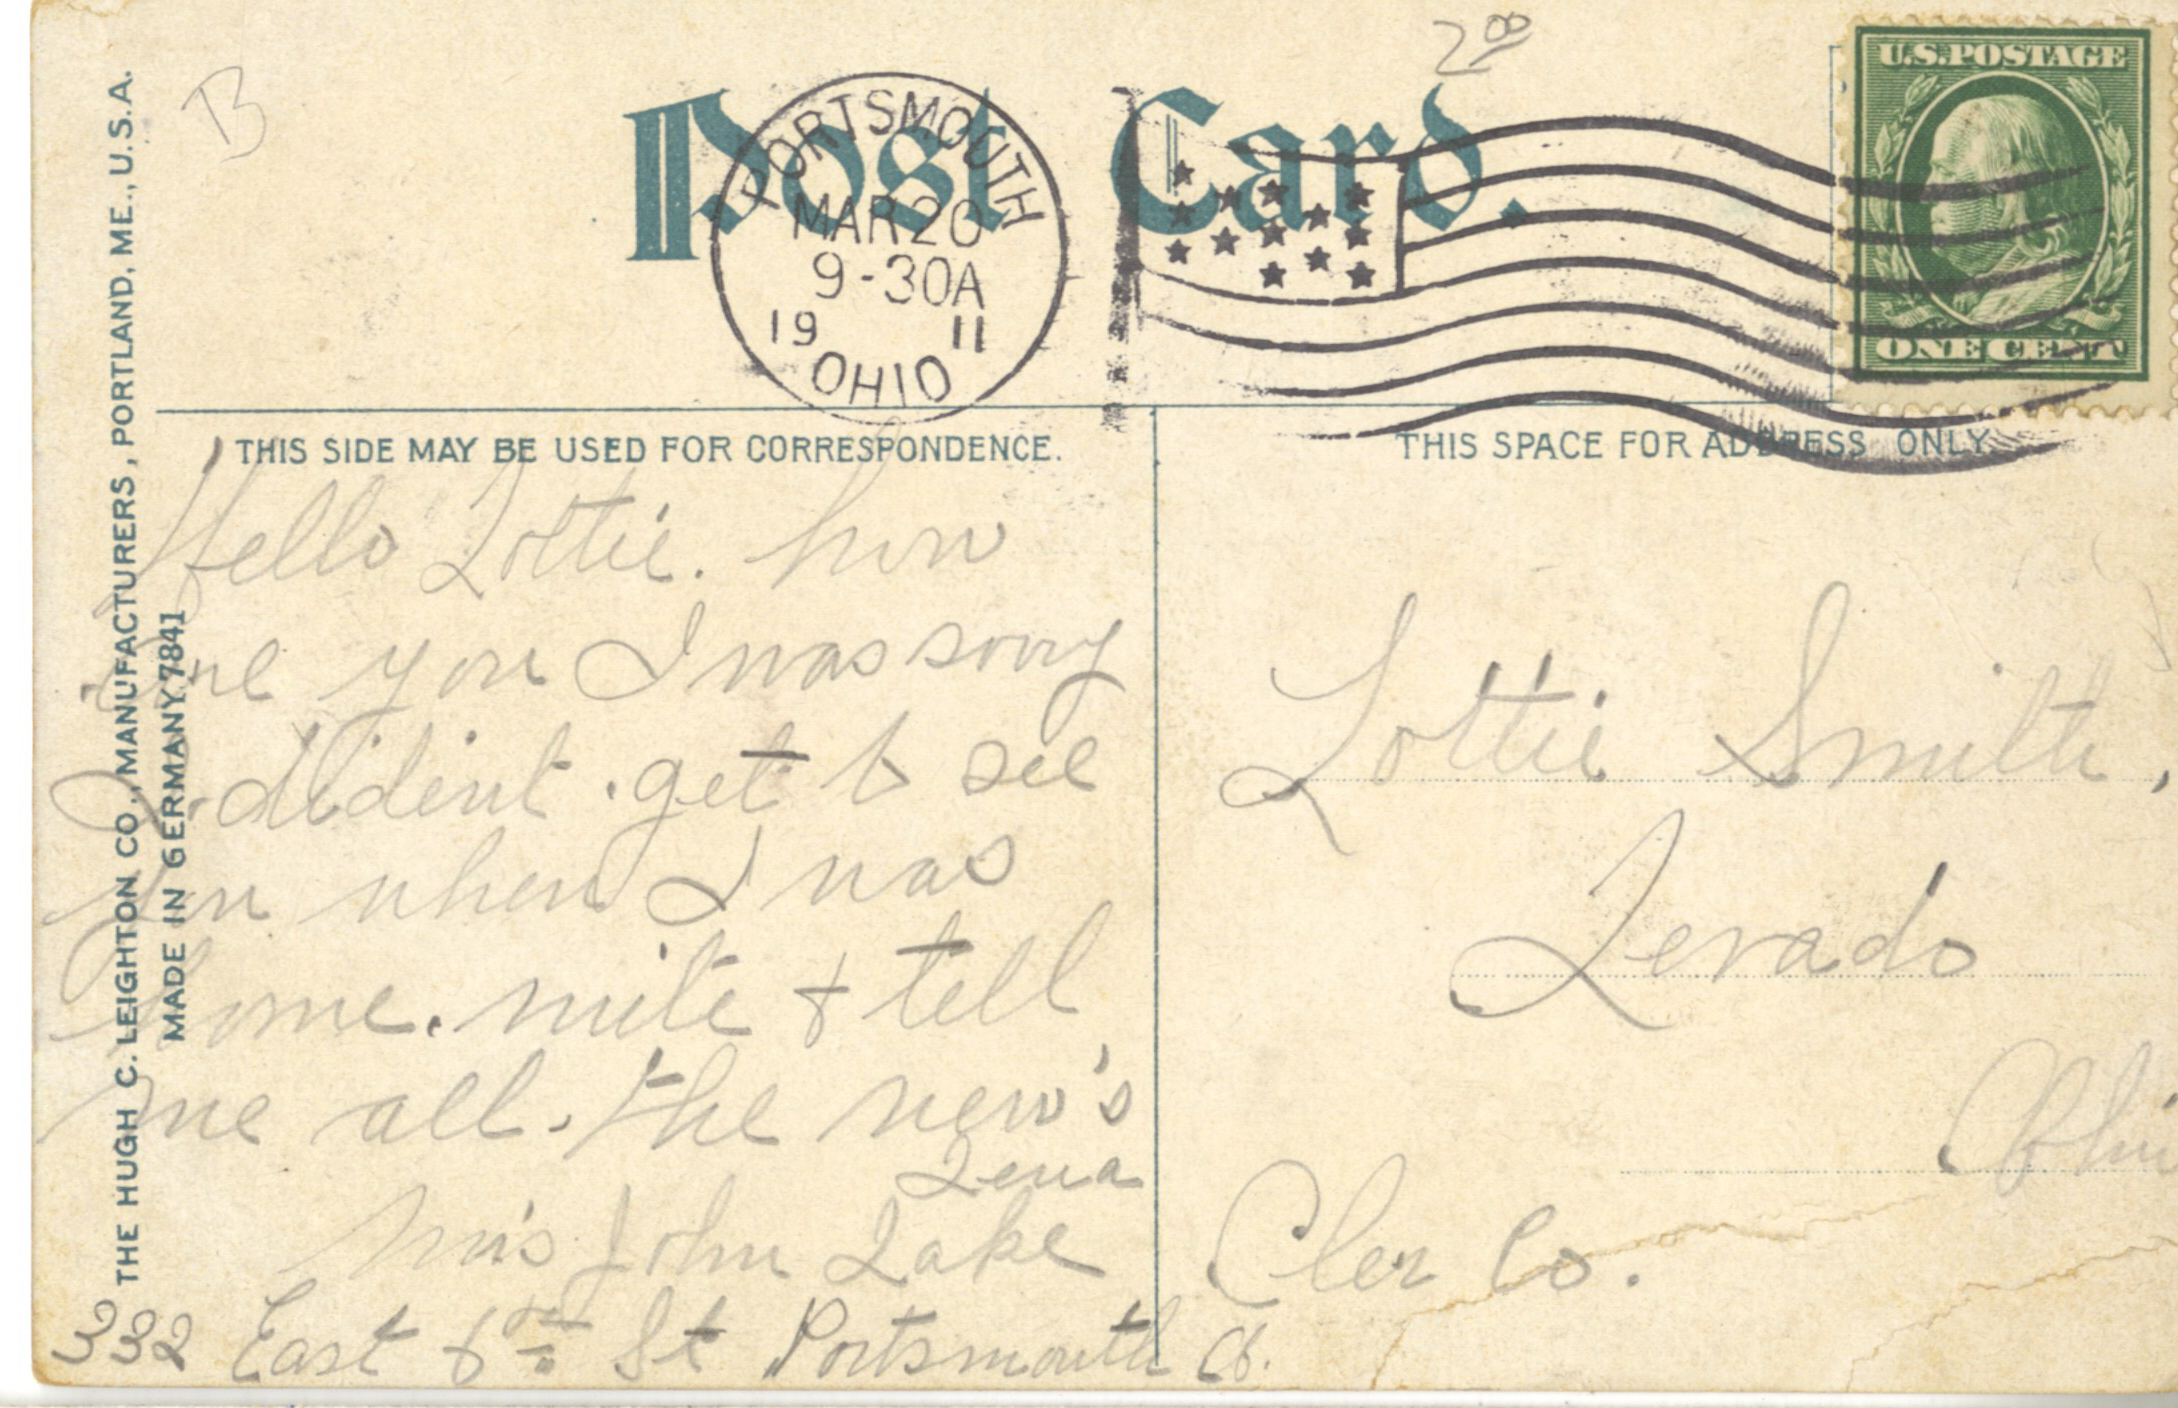 B
2⁰⁰
Post Card.
PORTSMOUTH
MAR 20
9-30A
19 11
OHIO
U.S. POSTAGE
ONE CENT
THE HUGH C. LEIGHTON CO., MANUFACTURERS, PORTLAND, ME., U.S.A.
MADE IN GERMANY. 7841
THIS SIDE MAY BE USED FOR CORRESPONDENCE.
Hello Lottie. how
are you I was sorry
I dident get to see
you when I was
home. write & tell
me all. the new's
Lena
Mrs John Lake
332 East 6th St Portsmouth O.
THIS SPACE FOR ADDRESS ONLY.
Lottie Smith,
Levado
Ohio
Cler Co.